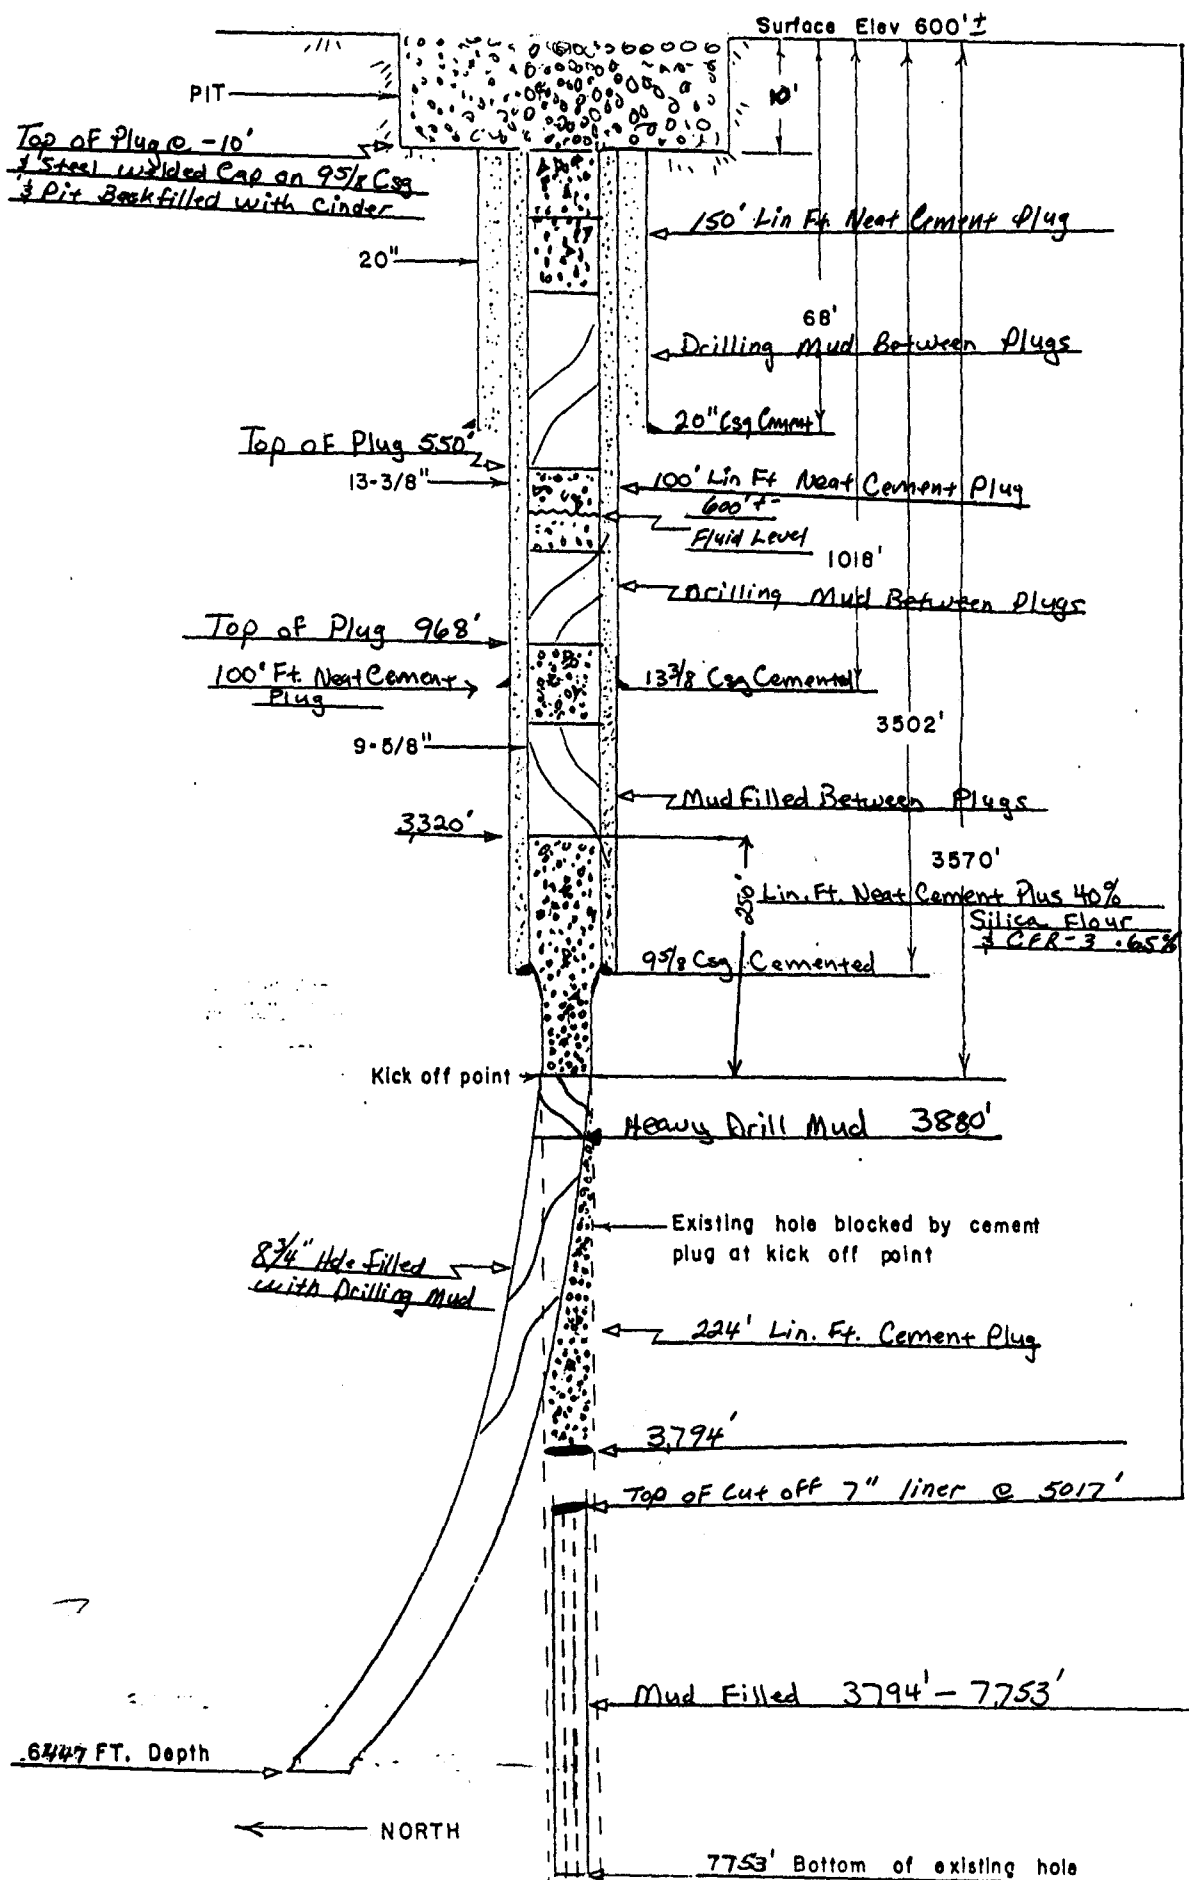 Surface Elev 600'±
10'
PIT
Top of Plug @ -10'
& Steel welded Cap on 9 5/8 Csg
& Pit Backfilled with Cinder
150' Lin Ft. Neat Cement Plug
20"
68'
Drilling Mud Between Plugs
20" Csg Cmmt
Top of Plug 550'
13-3/8"
100' Lin Ft Neat Cement Plug
600'+-
Fluid Level
1018'
Drilling Mud Between Plugs
Top of Plug 968'
100' Ft. Neat Cement
Plug
13 3/8 Csg Cemented
3502'
9-5/8"
Mud Filled Between Plugs
3,320'
3570'
250'
Lin. Ft. Neat Cement Plus 40%
Silica Flour
& CFR-3 .65%
9 5/8 Csg Cemented
Kick off point
Heavy Drill Mud 3880'
Existing hole blocked by cement
plug at kick off point
8 3/4" Hole Filled
with Drilling Mud
224' Lin. Ft. Cement Plug
3,794'
Top of Cut off 7" liner @ 5017'
Mud Filled 3794' - 7,753'
6447 FT. Depth
NORTH
7753' Bottom of existing hole